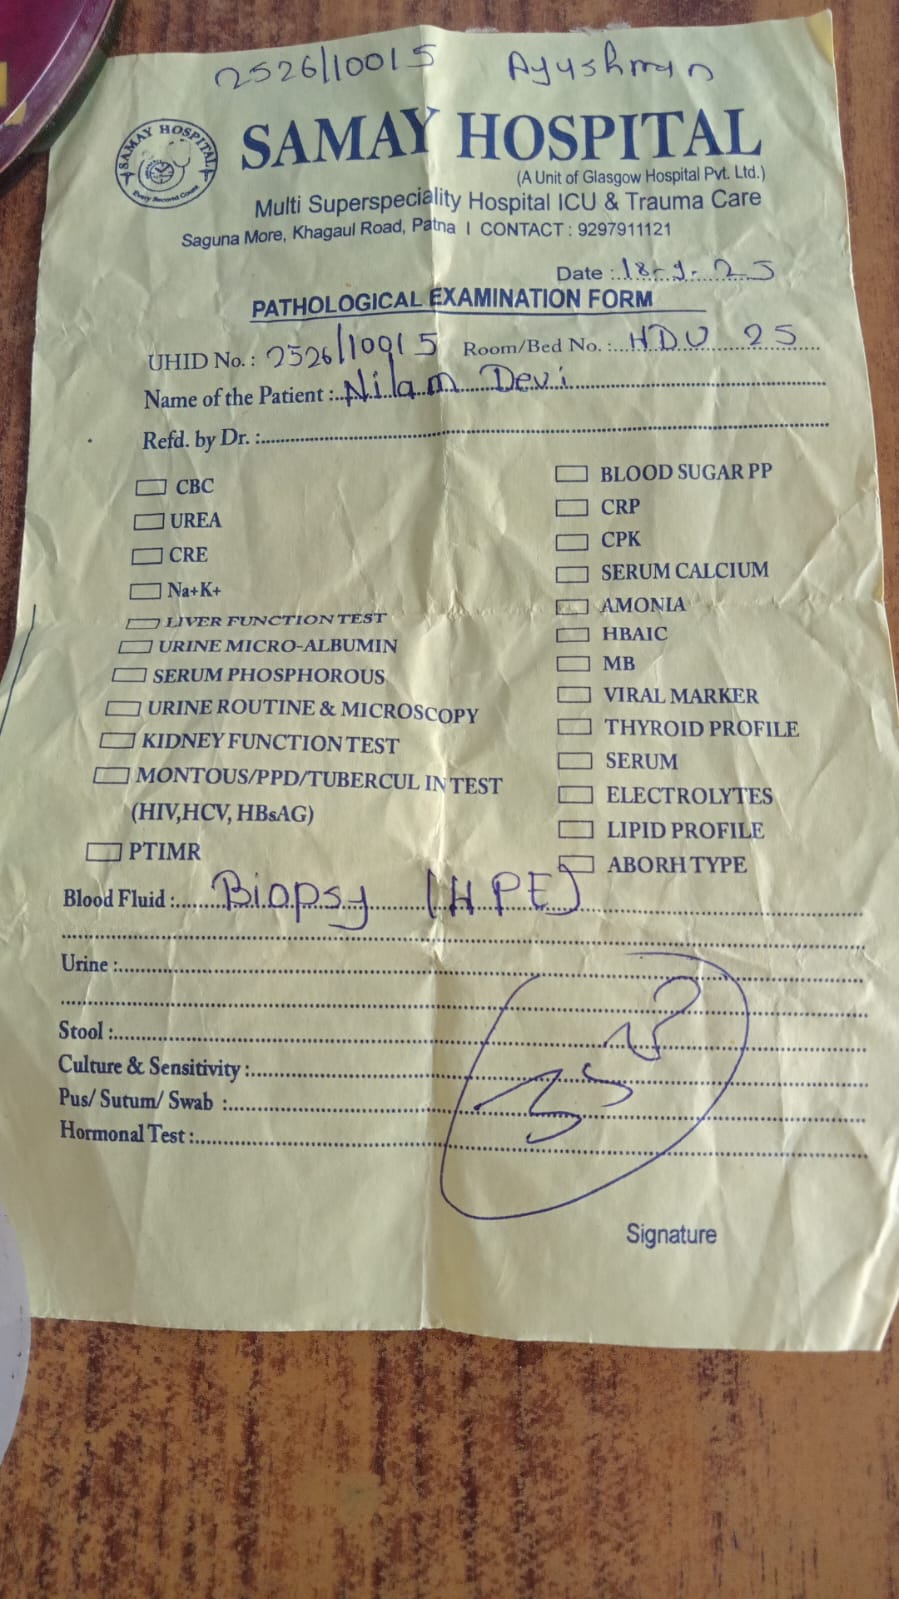 2526/10015 Ayushman
SAMAY HOSPITAL
Every Second Count
SAMAY HOSPITAL
(A Unit of Glasgow Hospital Pvt. Ltd.)
Multi Superspeciality Hospital ICU & Trauma Care
Saguna More, Khagaul Road, Patna I CONTACT : 9297911121
Date :
PATHOLOGICAL EXAMINATION FORM
UHID No. : 2526/10015 Room/Bed No. : HDU 25
Name of the Patient : Nilam Devi
Refd. by Dr. :
CBC
UREA
CRE
Na+K+
LIVER FUNCTION TEST
URINE MICRO-ALBUMIN
SERUM PHOSPHOROUS
URINE ROUTINE & MICROSCOPY
KIDNEY FUNCTION TEST
MONTOUS/PPD/TUBERCUL IN TEST
(HIV,HCV, HBsAG)
PTIMR
BLOOD SUGAR PP
CRP
CPK
SERUM CALCIUM
AMONIA
HBAIC
MB
VIRAL MARKER
THYROID PROFILE
SERUM
ELECTROLYTES
LIPID PROFILE
ABORH TYPE
Blood Fluid : Biopsy (HPE)
Urine :
Stool :
Culture & Sensitivity :
Pus/ Sutum/ Swab :
Hormonal Test :
Signature